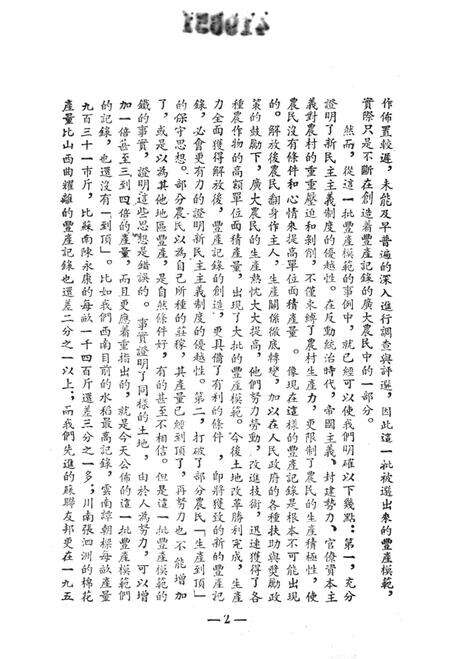 作佈置較遲，未能及早普遍的深入進行調查與評選，因此這一批被選出來的豐產模範，
實際只是不斷在創造着豐產記錄的廣大農民中的一部分。
然而，從這一批豐產模範的事例中，就已經可以使我們明確以下幾點：第一，充分
證明了新民主主義制度的優越性。在反動統治時代，帝國主義、封建勢力、官僚資本主
義對農村的重重壓迫和剝削，不僅束縛了農村生產力，更限制了農民的生產積極性，使
農民沒有條件和心情來提高單位面積產量。像現在這樣的豐產記錄是根本不可能出現
的。解放後農民翻身作主人，生產關係徹底轉變，加以在人民政府的各種扶助與獎勵政
策的鼓勵下，廣大農民的生產熱忱大大提高，他們努力勞動，改進技術，迅速獲得了各
種農作物的高額單位面積產量，出現了大批的豐產模範。今後土地改革勝利完成，生產
力全面獲得解放後，豐產記錄的創造，更具備了有利的條件，即將獲致的新的豐產記
錄，必會更有力的證明新民主主義制度的優越性。第二，打破了部分農民「生產到頂」
的保守思想。部分農民以為自己所種的莊稼，其產量已經到頂了，再努力也不能增加
了，或是以為其他地區豐產，是自然條件好，有的甚至不相信。但是這一批豐產模範的
鐵的事實，證明這些思想是錯誤的。事實證明了同樣的土地，由於人為努力，可以增
加一倍甚至三到四倍的產量，而且更應着重指出的，就是今天公佈的這一批豐產模範們
的記錄，也還沒有「到頂」。比如我們西南目前的水稻最高記錄，雲南譚朝樑每畝產量
九百三十一市斤，比蘇南陳永康的每畝一千四百斤還差三分之一多；川南張泗洲的棉花
產量比山西曲耀離的豐產記錄也還差二分之一以上；而我們先進的蘇聯友邦更在一九五
—2—